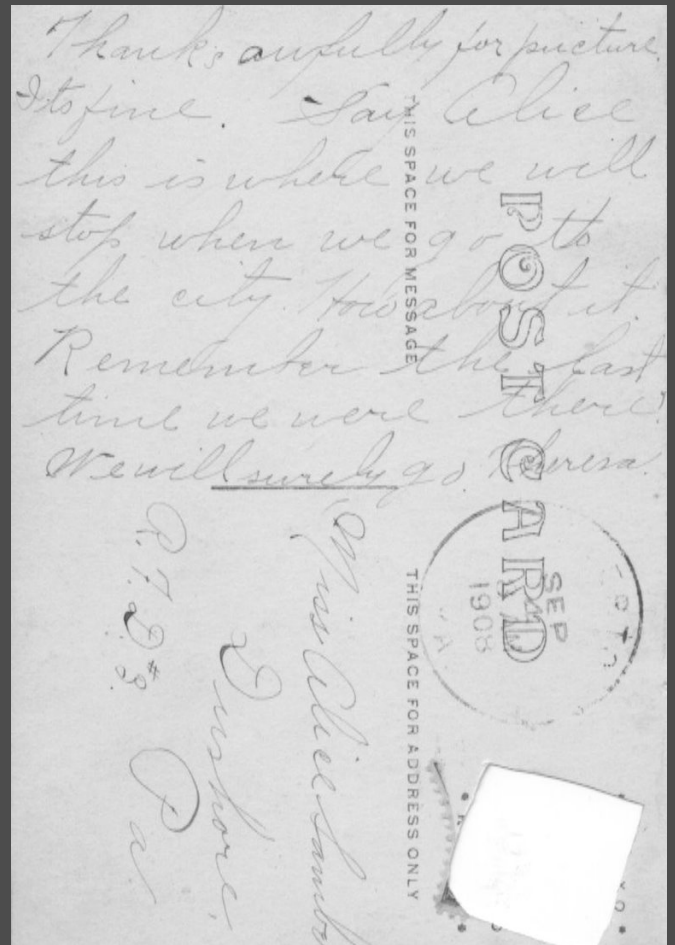 Thanks awfully for picture.
Its fine. Say Alice
this is where we will
stop when we go to
the city. How about it.
Remember the last
time we were there?
We will surely go. Theresa.
THIS SPACE FOR MESSAGE
POST CARD
THIS SPACE FOR ADDRESS ONLY
SEP
1908
Miss Alice
Dushore,
R.F.D #3. Pa.